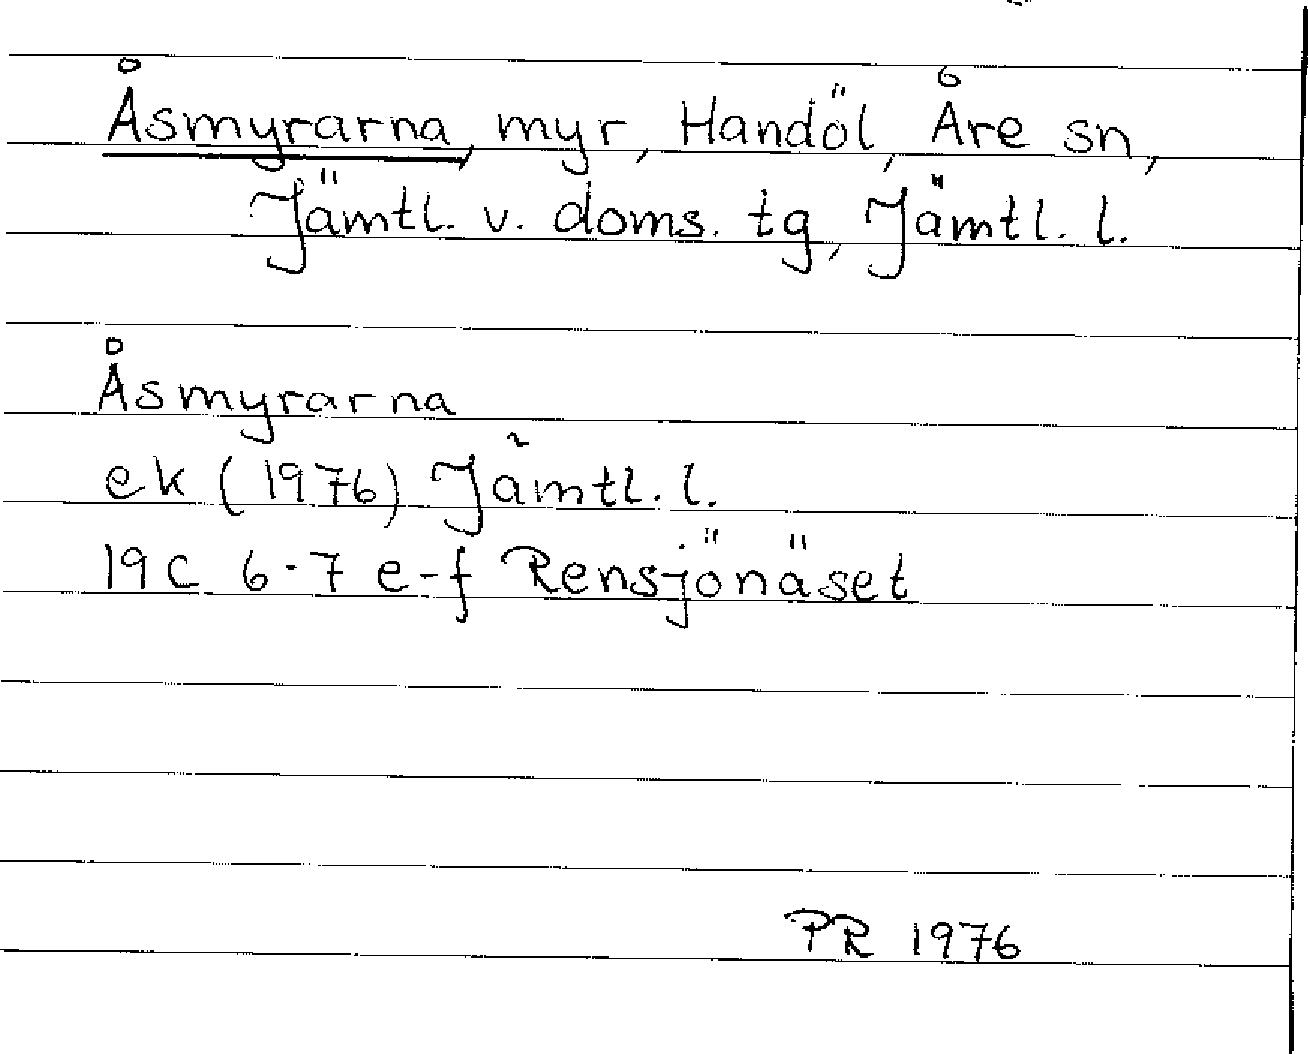 Åsmyrarna, myr, Handöl, Åre sn,
Jämtl. v. doms. tg, Jämtl. l.
Åsmyrarna
ek (1976) Jämtl. l.
19C 6-7 e-f Rensjönäset
PR 1976